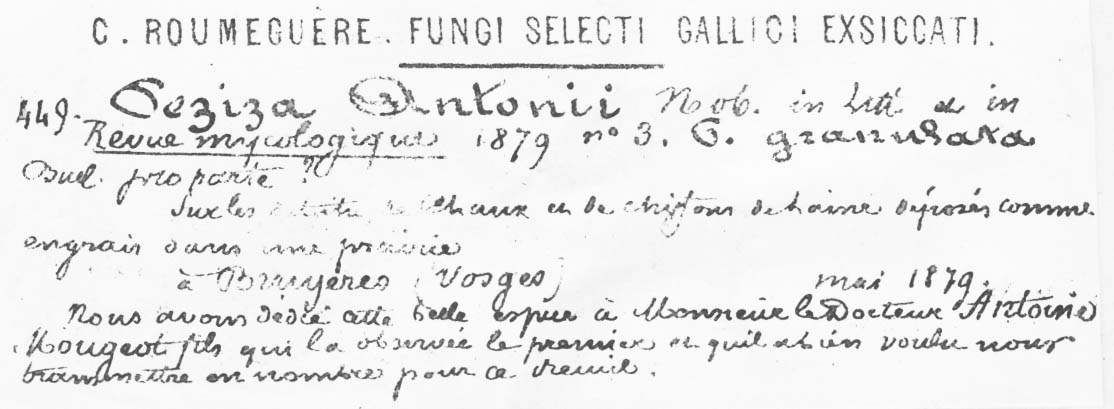 C. ROUMEGUÈRE. FUNGI SELECTI GALLICI EXSICCATI.
449. Peziza Antonii Nob. in Litt. et in
Revue mycologique 1879 nº 3. P. granulata
Bul. pro parte ?
Sur les de chaux et de chiffons de laine déposés comme
engrais dans une prairie
à Bruyères (Vosges) mai 1879.
Nous avons dédié cette belle espèce à Monsieur le Docteur Antoine
Mougeot fils qui l'a observée le premier et qui a bien voulu nous
transmettre en nombre pour ce recueil.